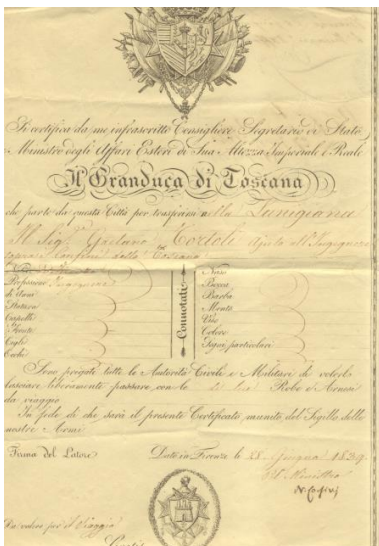 Si certifica da me infrascritto Consigliere Segretario di Stato
Ministro degli Affari Esteri di Sua Altezza Imperiale e Reale
Il Granduca di Toscana
che parte da questa Città per trasferirsi nella Lunigiana
il Sig. Gaetano Cortoli
Professione Ingegnere
di Anni
Statura
Capelli
Fronte
Cigli
Occhi
Connotati
Naso
Bocca
Barba
Mento
Viso
Colore
Segni particolari
Sono pregate tutte le Autorità Civili e Militari di volerlo
lasciare liberamente passare con le di lui Robe e Arnesi
da viaggio
In fede di che sarà il presente Certificato munito del Sigillo delle
nostre Armi
Firma del Latore
Dato in Firenze li 28 Giugno 1839
Il Ministro
Da valere per il Viaggio